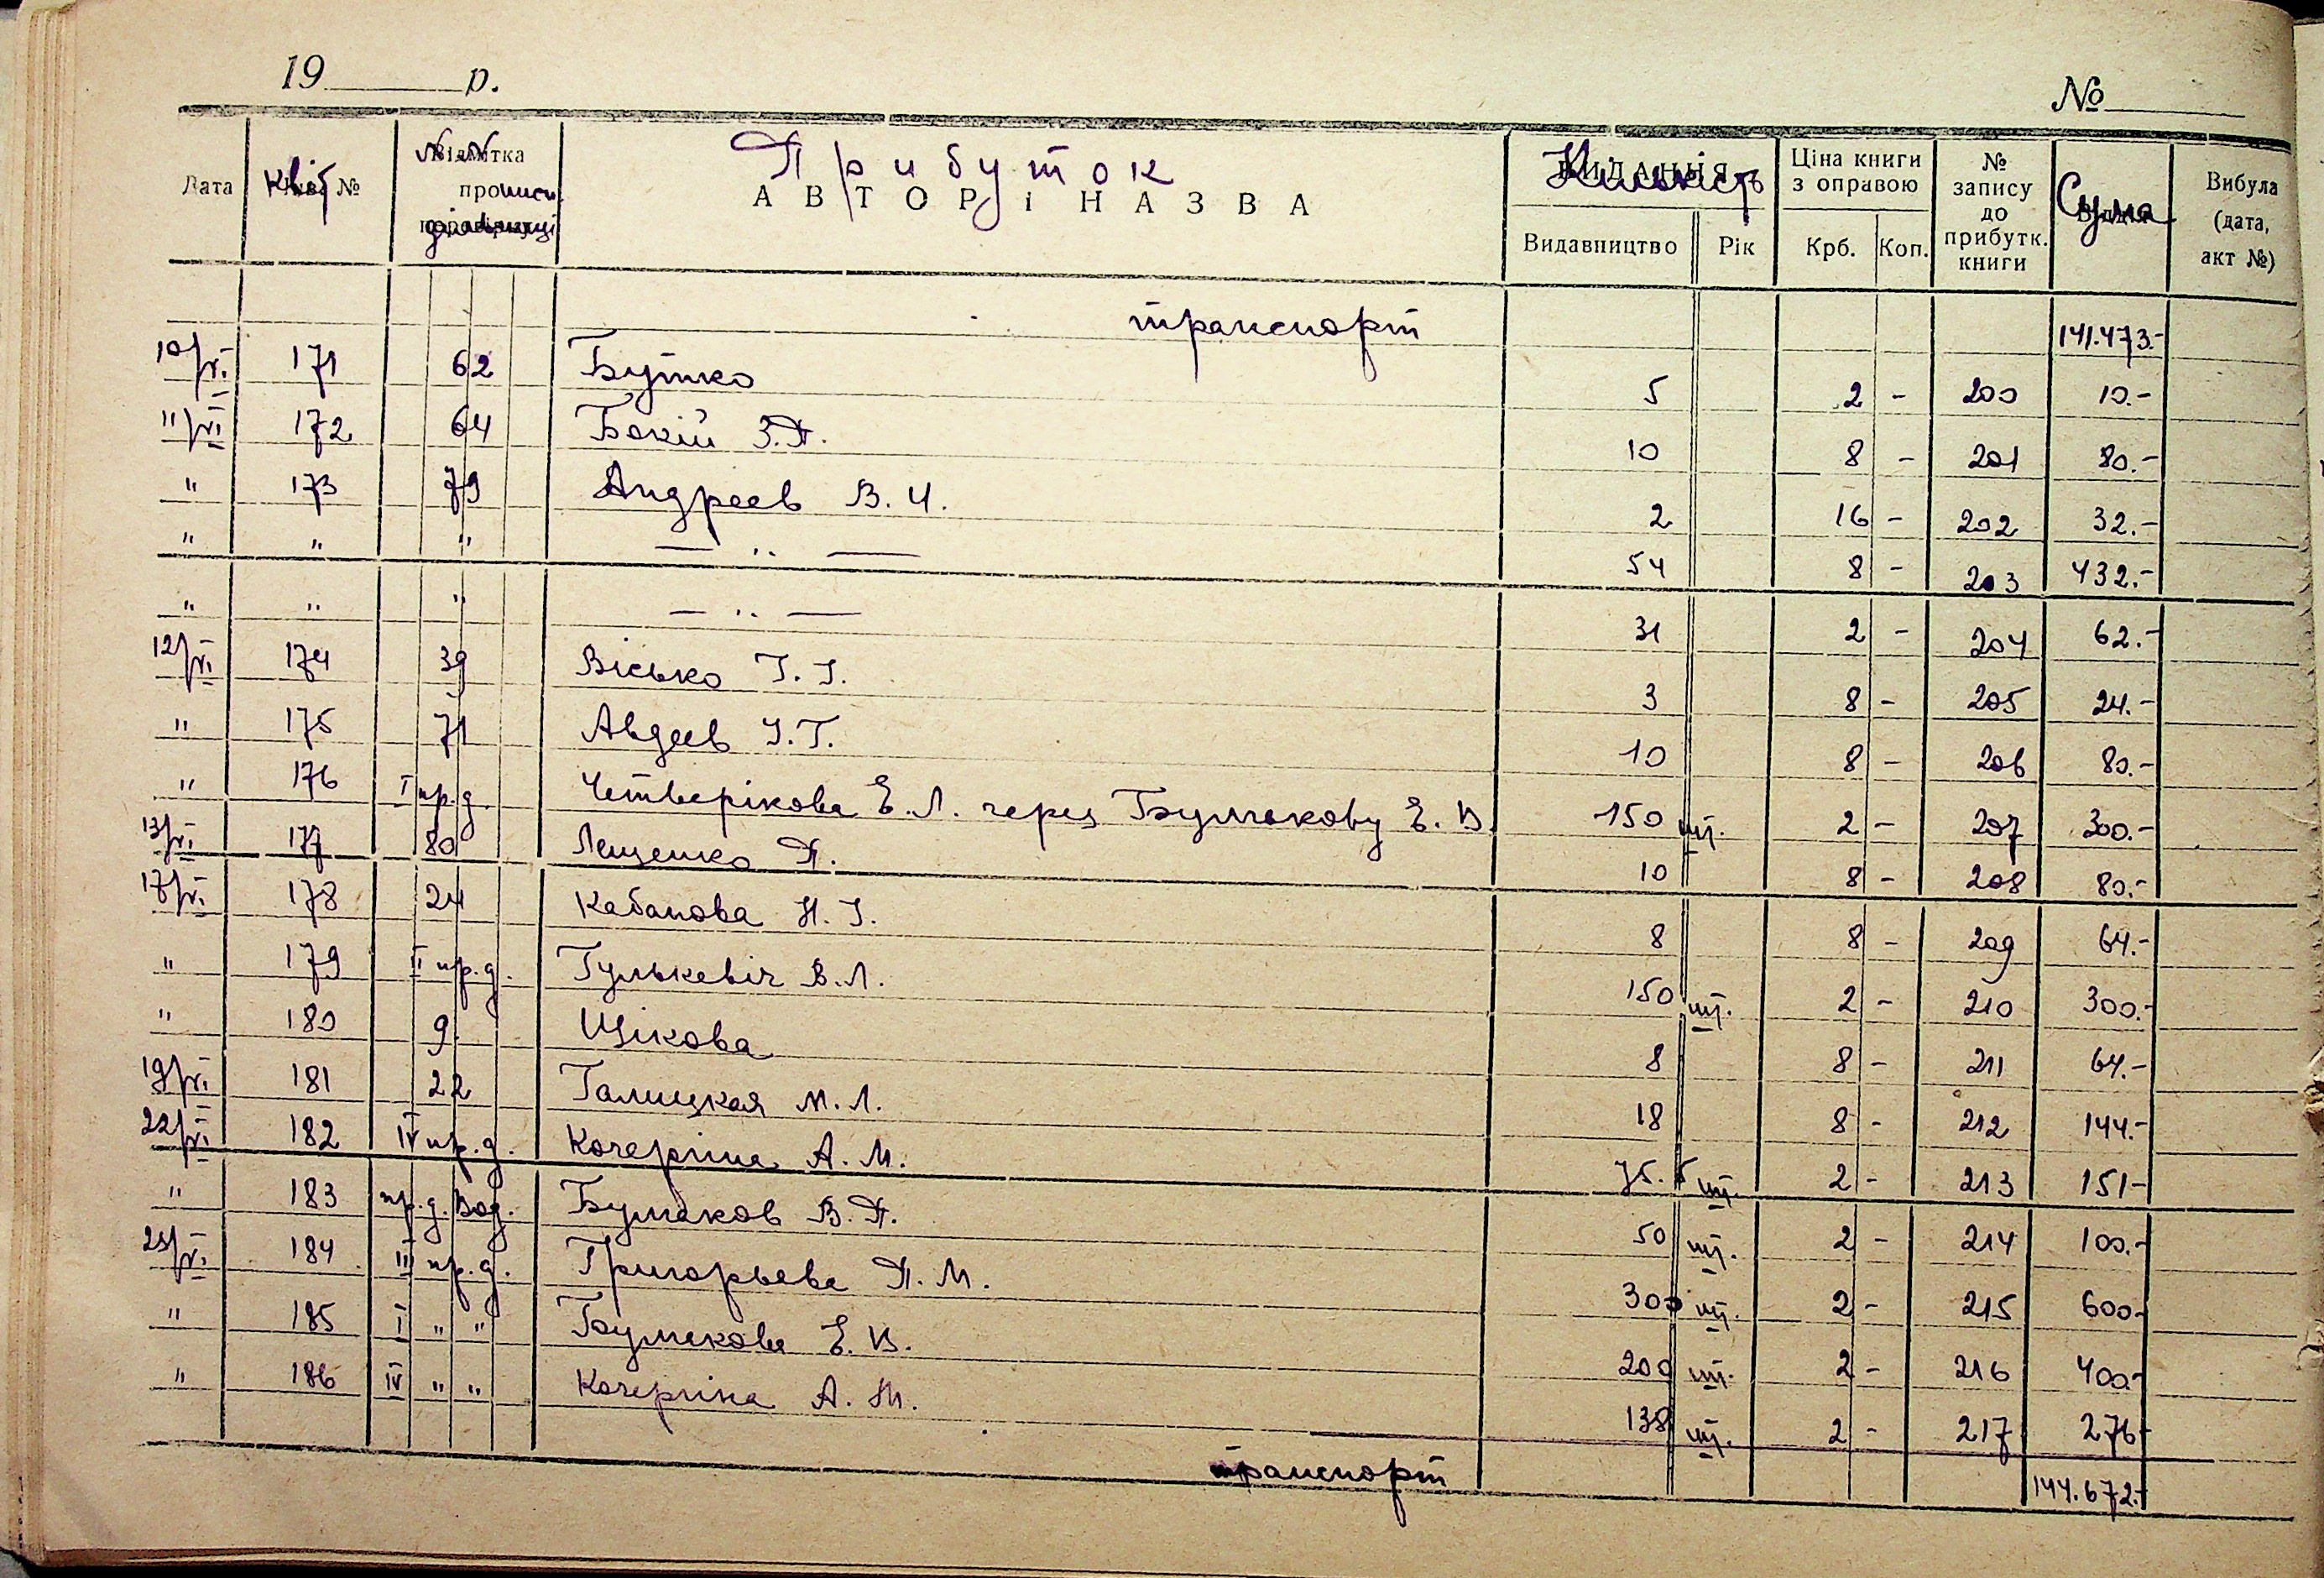 19 р. №
Дата Квіт № № № дільниці Прибуток Кількість Ціна книги з оправою № запису до прибутк. книги Сума Вибула (дата, акт №)
АВТОР І НАЗВА Видавництво Рік Крб. Коп.
транспорт 141.473.-
10/VI 171 62 Бутко 5 2 - 200 10.-
11/VI 172 64 Бокій З.П. 10 8 - 201 80.-
" 173 79 Андреев В.И. 2 16 - 202 32.-
" " " — " — 54 8 - 203 432.-
" " " — " — 31 2 - 204 62.-
12/VI 174 39 Вісько І.І. 3 8 - 205 24.-
" 175 71 Авдеев І.Г. 10 8 - 206 80.-
" 176 I пр.д. Четверікова Е.Л. через Бумакову Е.В. 150 шт. 2 - 207 300.-
13/VI 177 80 Лещенко П. 10 8 - 208 80.-
17/VI 178 24 Кабанова Н.І. 8 8 - 209 64.-
" 179 II пр.д. Гулькевіч В.Л. 150 шт. 2 - 210 300.-
" 180 9 Щікова 8 8 - 211 64.-
19/VI 181 22 Галицкая М.Л. 18 8 - 212 144.-
22/VI 182 IV пр.д. Кочергіна А.М. 75.5 шт. 2 - 213 151-
" 183 пр.д.Вод. Бумаков В.П. 50 шт. 2 - 214 100.-
23/VI 184 III пр.д. Григорьева П.М. 300 шт. 2 - 215 600-
" 185 I " " Бумакова Е.В. 200 шт. 2 - 216 400-
" 186 IV " " Кочергіна А.М. 138 шт. 2 - 217 276-
транспорт 144.672.-